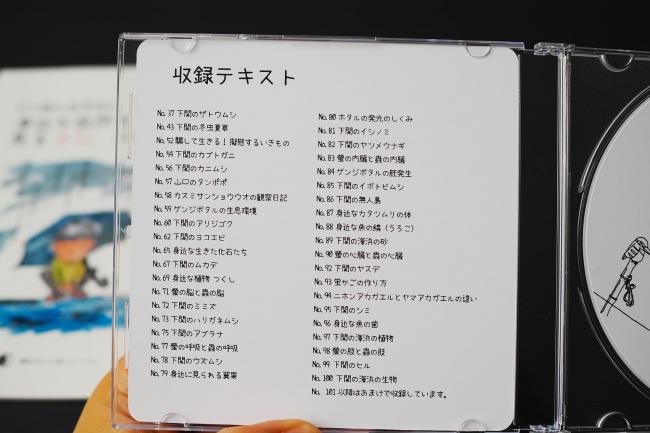 収録テキスト
No.37 下関のザトウムシ
No.43 下関の冬虫夏草
No.52 騙して生きる!擬態するいきもの
No.54 下関のカブトガニ
No.56 下関のカニムシ
No.57 山口のタンポポ
No.58 カスミサンショウウオの観察日記
No.59 ゲンジボタルの生息環境
No.60 下関のアリジゴク
No.62 下関のヨコエビ
No.65 身近な生きた化石たち
No.67 下関のムカデ
No.69 身近な植物 つくし
No.71 螢の脳と蟲の脳
No.72 下関のミミズ
No.73 下関のハリガネムシ
No.75 下関のアブラナ
No.77 螢の呼吸と蟲の呼吸
No.78 下関のウズムシ
No.79 身近に見られる翼果
No.80 ホタルの発光のしくみ
No.81 下関のイシノミ
No.82 下関のヤツメウナギ
No.83 螢の内臓と蟲の内臓
No.84 ゲンジボタルの胚発生
No.85 下関のイボトビムシ
No.86 下関の無人島
No.87 身近なカタツムリの体
No.88 身近な魚の鱗(うろこ)
No.89 下関の海浜の砂
No.90 螢の心臓と蟲の心臓
No.92 下関のヤスデ
No.93 蛍かごの作り方
No.94 ニホンアカガエルとヤマアカガエルの違い
No.95 下関のシミ
No.96 身近な魚の歯
No.97 下関の海浜の植物
No.98 螢の肢と蟲の肢
No.99 下関のヒル
No.100 下関の海浜の生物
No. 101以降はおまけで収録しています。